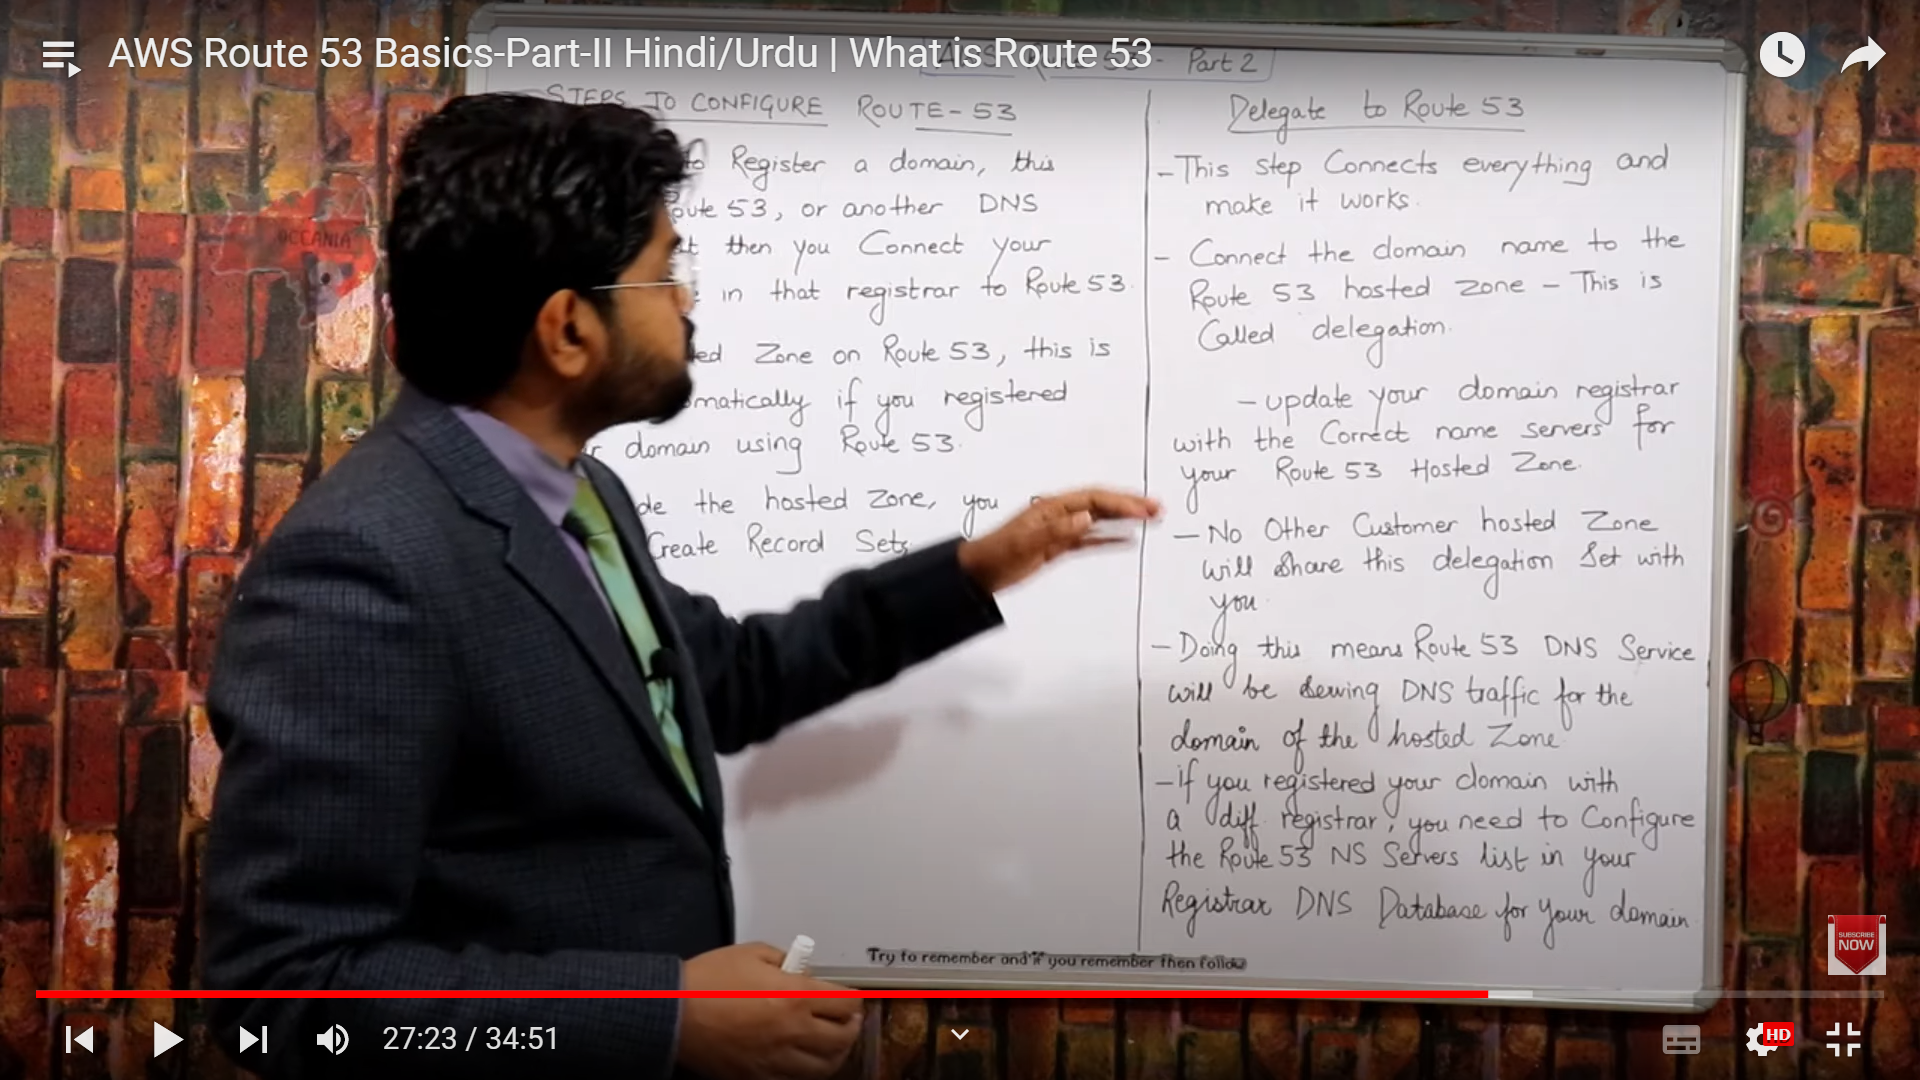 AWS Route 53 Basics-Part-II Hindi/Urdu | What is Route 53
Part 2
STEPS TO CONFIGURE ROUTE-53
to Register a domain, this
Route 53, or another DNS
then you Connect your
in that registrar to Route 53.
Zone on Route 53, this is
if you registered
domain using Route 53.
the hosted Zone, you
Create Record Sets
Delegate to Route 53
- This step Connects everything and
make it works.
- Connect the domain name to the
Route 53 hosted zone - This is
Called delegation.
- update your domain registrar
with the Correct name servers for
your Route 53 Hosted Zone.
- No Other Customer hosted Zone
will share this delegation Set with
you.
- Doing this means Route 53 DNS Service
will be serving DNS traffic for the
domain of the hosted Zone.
- If you registered your domain with
a diff registrar, you need to Configure
the Route 53 NS Servers list in your
Registrar DNS Database for your domain.
OCEANIA
Try to remember and if you remember then follow
SUBSCRIBE
NOW
27:23 / 34:51
HD